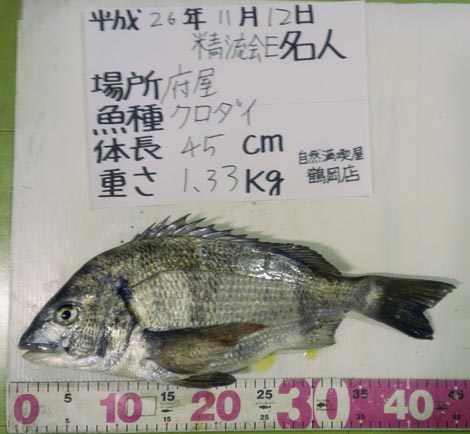 平成 26年 11月 12日
精流会E名人
場所 府屋
魚種 クロダイ
体長 45 cm
重さ 1.33 Kg
自然満喫屋
鶴岡店
0 5 10 15 20 25 30 35 40 45
15 25 35